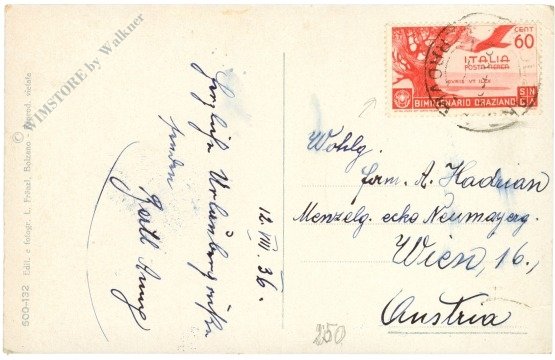 WIMSTORE by Walkner
500-132 Edit. e fotogr. L. Fränzl, Bolzano - Riprod. vietata
Herzliche Urlaubsgrüße
senden
12. VIII. 36.
CENT 60
ITALIA
POSTA AEREA
BIMILLENARIO ORAZIANO
Wohlg.
Fam. A. Hadrian
Menzelg. ecke Neumayerg.
Wien, 16.,
Austria
250